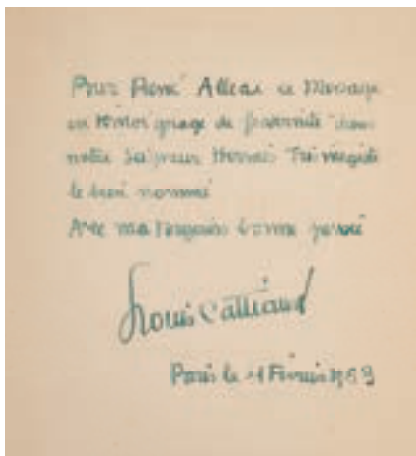 Pour René Alleau ce Message
en témoignage de fraternité dans
notre Seigneur Hermès Trismégiste
le bien nommé
Avec ma toujours bonne pensée
Louis Cattiaux
Paris le Février